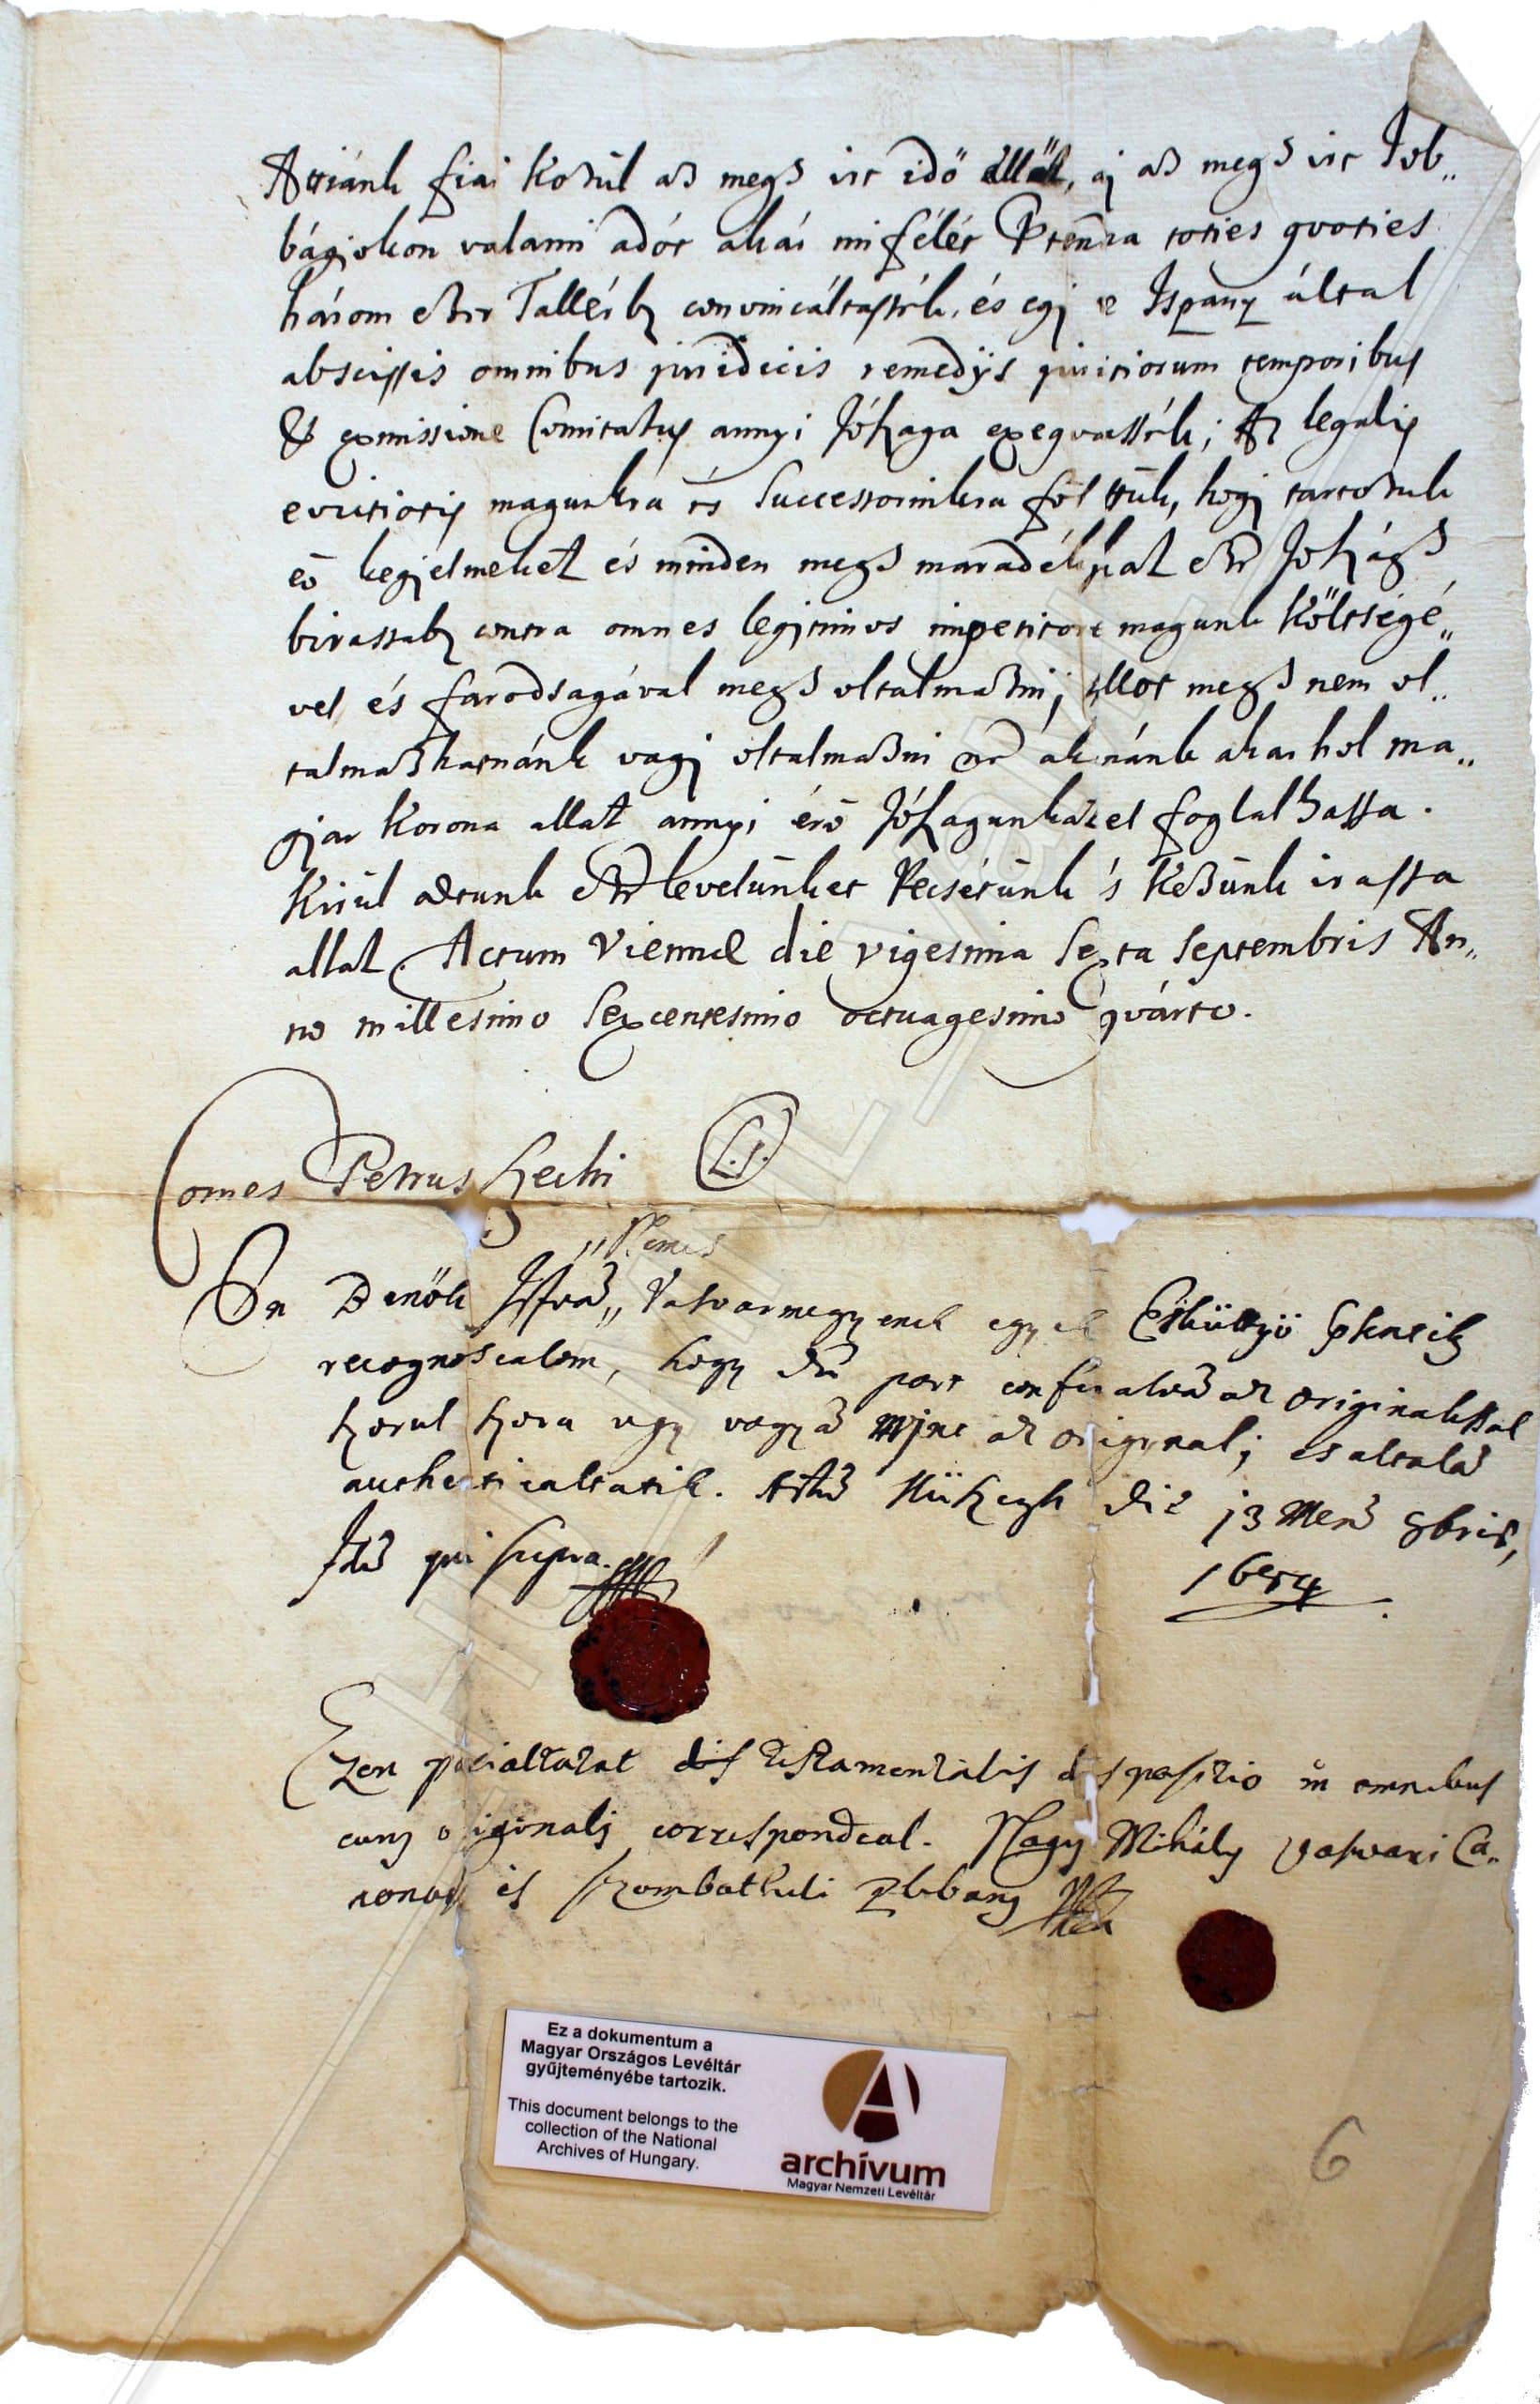 Attiánk fiai közül az megh irt idö alläl, aj az megh irt Job„
bágiokon valami adót akár mi félét toties qvoties
három ezer Tallérb convincáltassék, és egj Ispány által
abscissis omnibus juridicis remedijs quiciorum temporibus
& exmissione Comitatus annyi Jószaga exeqvassék; Az legalis
evictiotis magunkra és Successorinkra föl ttük, hogj tartozunk
eö kegjelmeket és minden megh maradékjat ezen Joszágh
birassab contra omnes legitimos impetitore magunk Költségé„
vel és faradsagával megh oltalmazni; Mellet megh nem ol„
talmazhatnánk vagj oltalmazni ne aknánk akar hol ma„
gjar Korona allat annyi érö Jószagunkat el foglalhassa.
Kirül adtunk ezen levelünket Pecsétünk 's Kezünk irassa
allat. Actum Viennæ die vigesima Sexta Septembris An„
no millesimo Sexcentesimo octuagesimo qvárto.
Comes Petrus Szechi L.S.
„Nemes
Én Benök Istvá„ Vasvarmegyenek egyik Esküttyö
recognoscalom, hogy part confrontalvá az originalissal
szorul szora ugy vagyō mint az originali; es altalā
authenticaltatik. Actū Küszegh die 13 Mens 8bris,
1684
Idē qui supra.
Ezen pariáltatat dis testamentalis dispositio in omnibus
cum originali correspondeal. Nagy Mihály vasvari Ca„
nonok és szombatheli Plebany
Ez a dokumentum a
Magyar Országos Levéltár
gyűjteményébe tartozik.
This document belongs to the
collection of the National
Archives of Hungary.
archívum
Magyar Nemzeti Levéltár
6